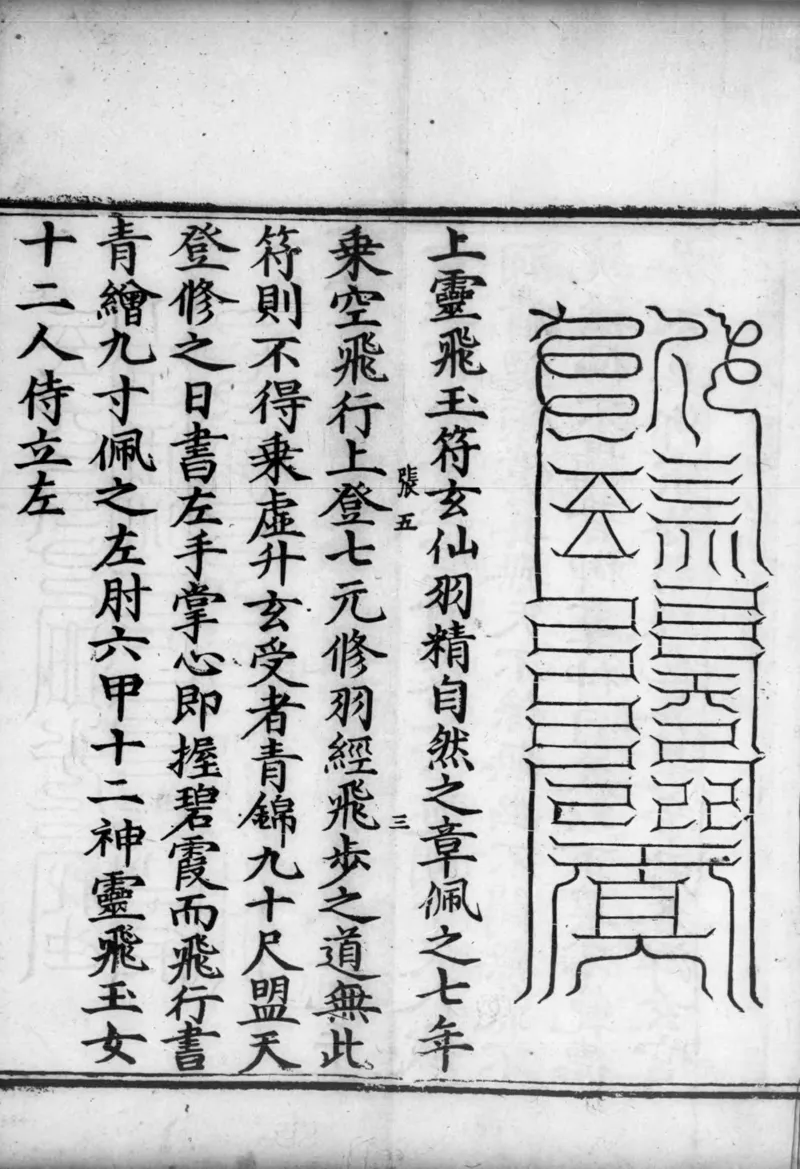 上靈飛玉符玄仙羽精自然之章佩之七年
張五
三
乗空飛行上登七元修羽經飛步之道無此
符則不得乗虛升玄受者青錦九十尺盟天
登修之日書左手掌心即握碧霞而飛行書
青繒九寸佩之左肘六甲十二神靈飛玉女
十二人侍立左